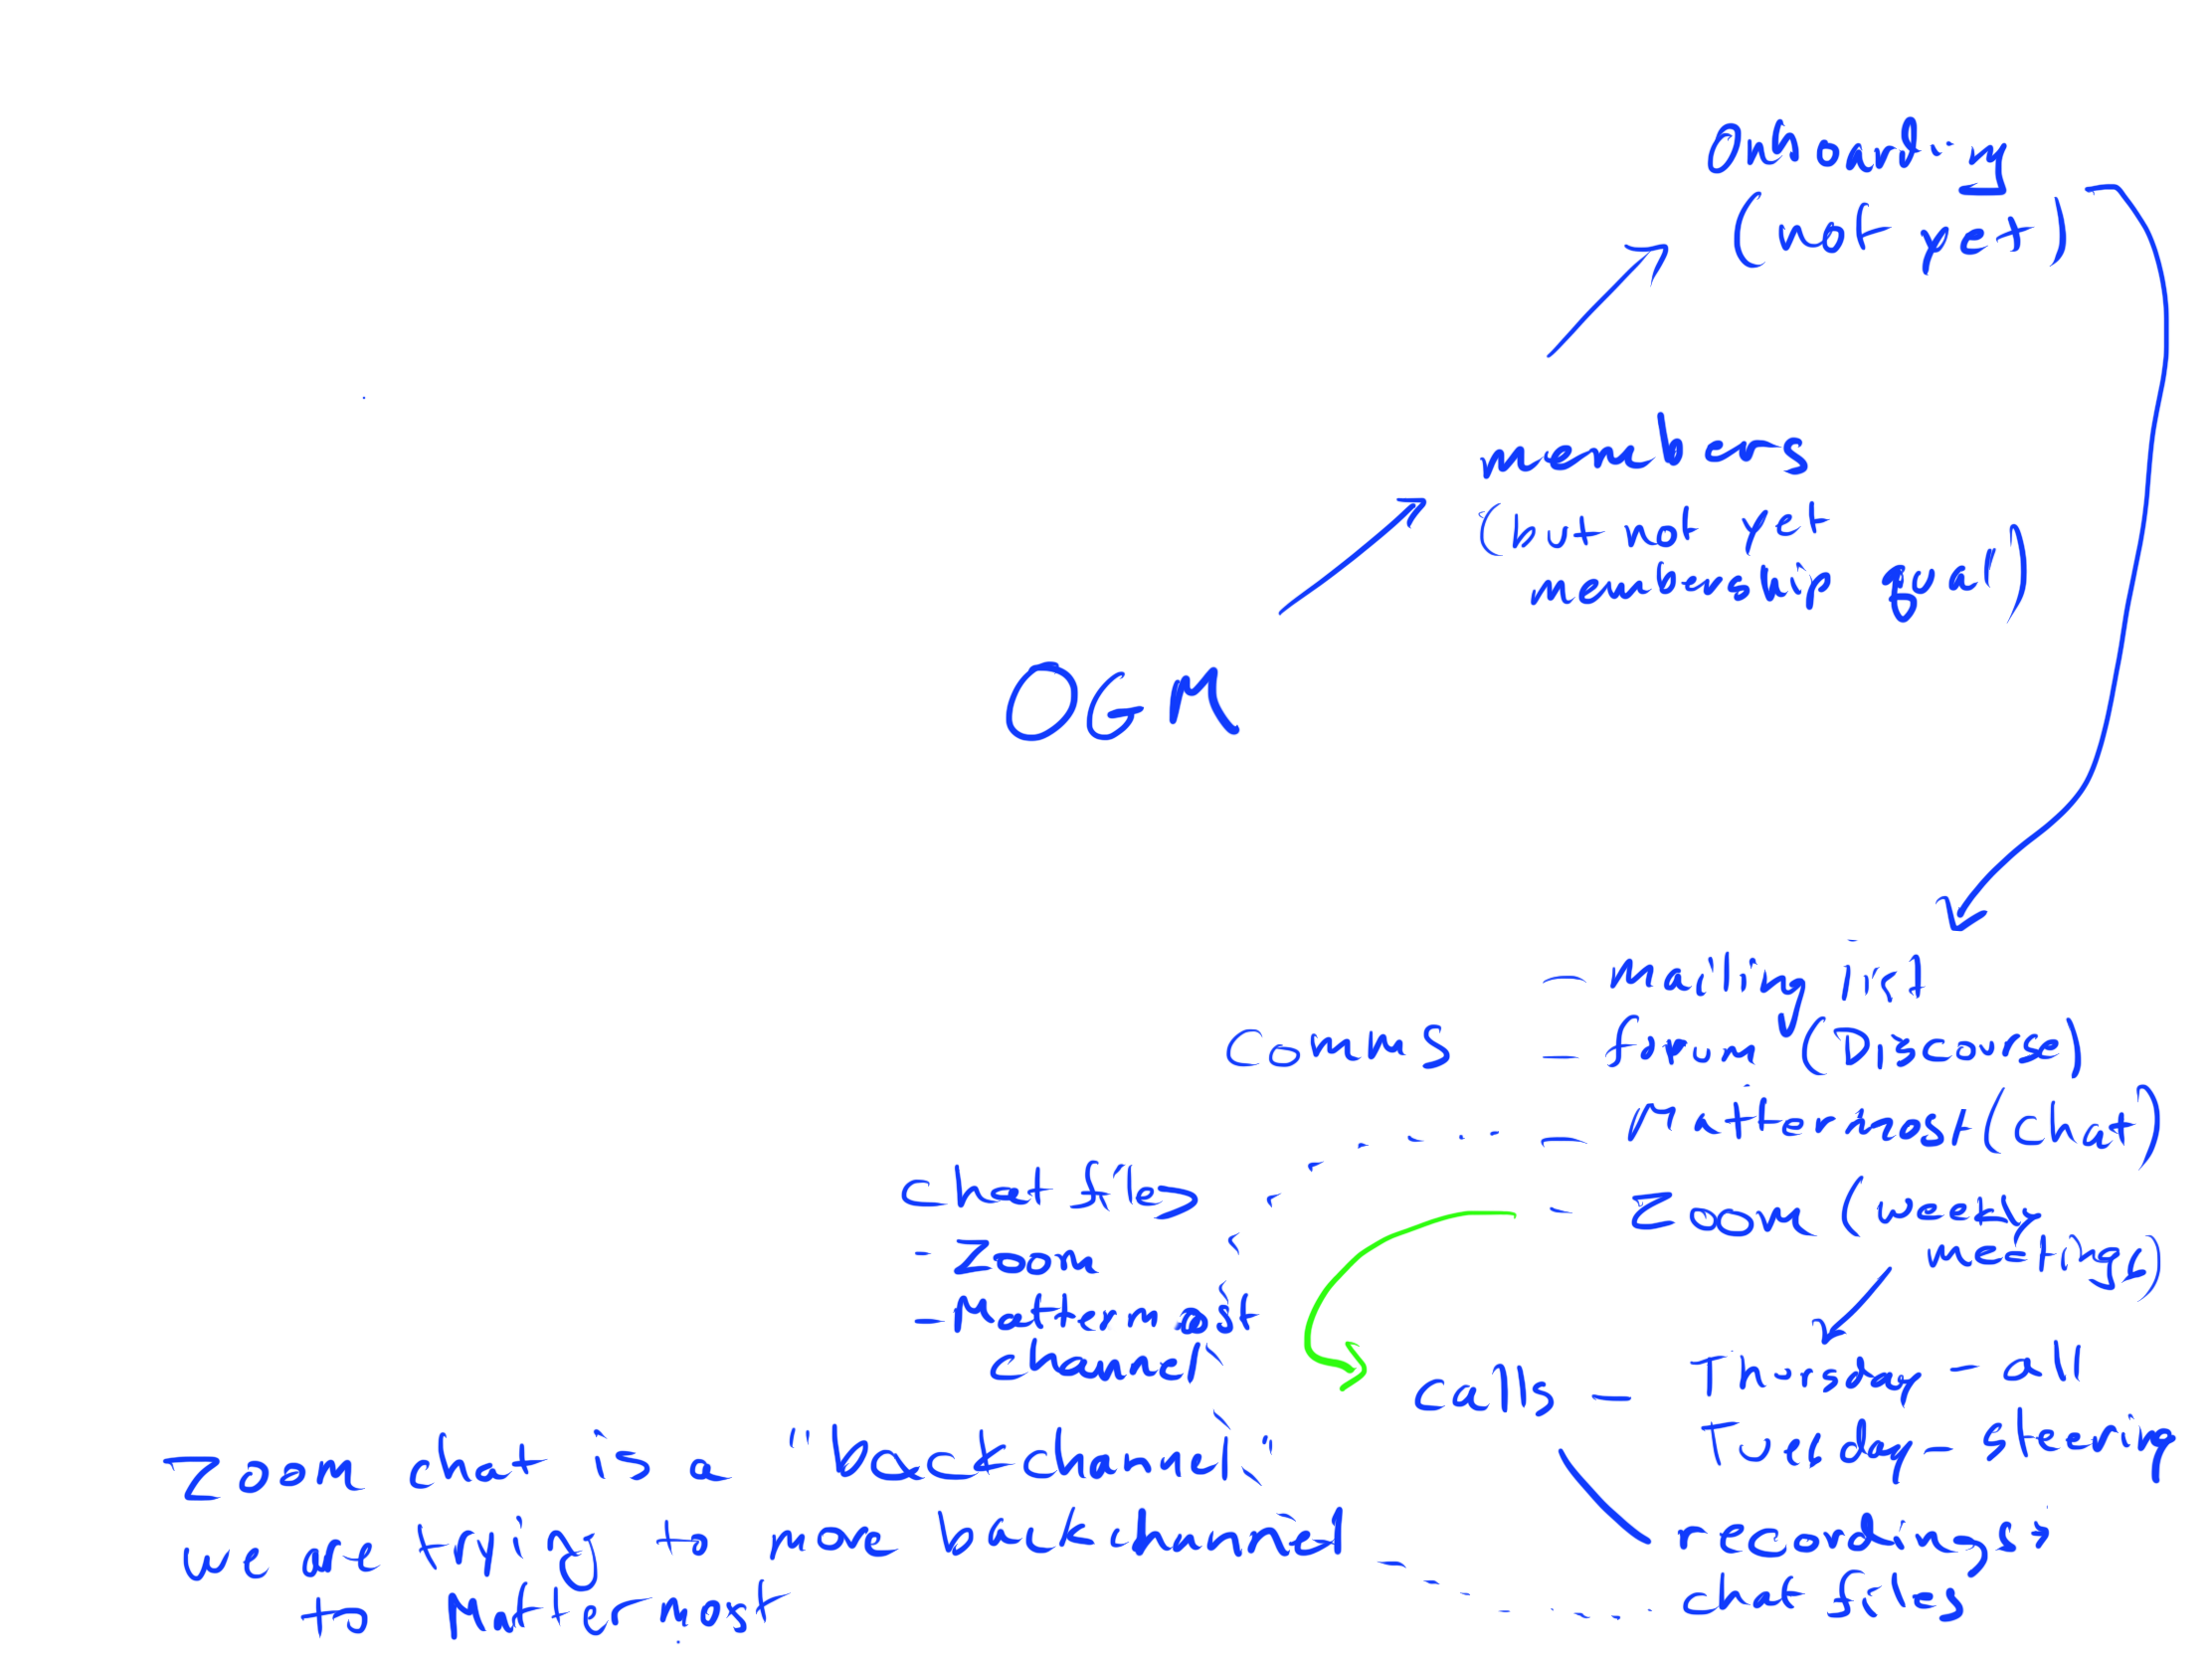 Onboarding
(not yet)
members
(but not yet
membership goal)
OGM
Comms
- Mailing list
- forum (Discourse)
- Mattermost (Chat)
- Zoom (weekly
meetings)
Chat files
- Zoom
- Mattermost
channel
Calls - Thursday - all
Tuesday - steering
recordings +
chat files
Zoom chat is a "backchannel"
we are trying to move backchannel
to Mattermost